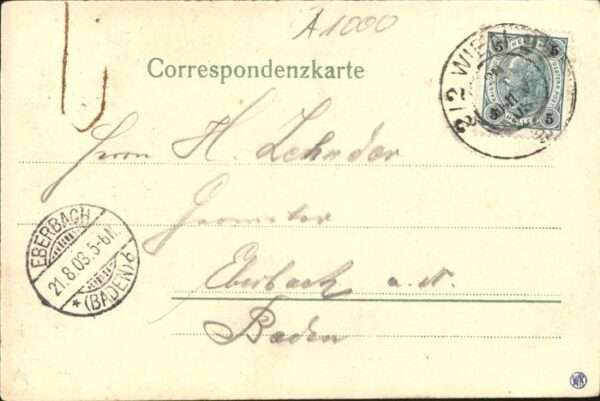 A 1000
Correspondenzkarte
5 5
2/2 WIEN
5 5
Herrn H. Zehnder
Geometer
Eberbach a. N.
Baden
EBERBACH
21.8.03.5-6N.
* (BADEN) b